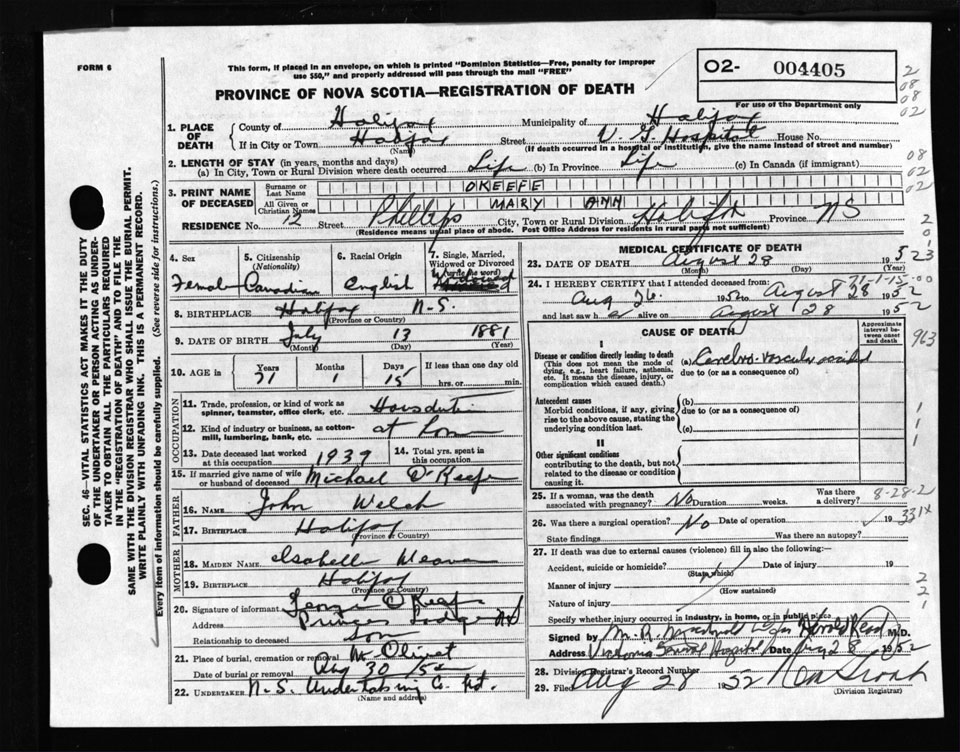 FORM 6
This form, if placed in an envelope, on which is printed "Dominion Statistics—Free, penalty for improper
use $50," and properly addressed will pass through the mail "FREE"
O2- 004405
PROVINCE OF NOVA SCOTIA—REGISTRATION OF DEATH
For use of the Department only
1. PLACE OF DEATH
County of Halifax Municipality of Halifax
If in City or Town Halifax Street V. G. Hospital House No.
(Name) (If death occurred in a hospital or institution, give name instead of street and number)
2. LENGTH OF STAY (in years, months and days)
(a) In City, Town or Rural Division where death occurred Life (b) In Province Life (c) In Canada (if immigrant)
3. PRINT NAME OF DECEASED
Surname or Last Name OKEEFE
All Given or Christian Names MARY ANN
RESIDENCE No. 12 Street Phillips City, Town or Rural Division Halifax Province NS
(Residence means usual place of abode. Post Office Address for residents in rural parts not sufficient)
4. SEX
Female
5. CITIZENSHIP
(Nationality)
Canadian
6. Racial Origin
English
7. Single, Married,
Widowed or Divorced
(write the word)
8. BIRTHPLACE Halifax N.S.
(Province or Country)
9. DATE OF BIRTH July 13 1881
(Month) (Day) (Year)
10. AGE in
Years Months Days If less than one day
71 1 15 hrs. or min.
OCCUPATION
11. Trade, profession, or kind of work as
spinner, teamster, office clerk, etc.
12. Kind of industry or business, as cotton-
mill, lumbering, bank, etc. at home
13. Date deceased last worked
at this occupation 1939
14. Total yrs. spent in
this occupation
15. If married give name of wife
or husband of deceased Michael O'Keefe
FATHER
16. NAME John Welsh
17. BIRTHPLACE Halifax
(Province or Country)
MOTHER
18. MAIDEN NAME Isabelle
19. BIRTHPLACE Halifax
(Province or Country)
20. Signature of informant George O'Keefe
Address Princes Lodge NS
Relationship to deceased Son
21. Place of burial, cremation or removal Mt Olivet
Date of burial or removal Aug 30/52
22. UNDERTAKER N-S. Undertaking Co. Ltd.
(Name and address)
MEDICAL CERTIFICATE OF DEATH
23. DATE OF DEATH August 28 1952
(Month) (Day) (Year)
24. I HEREBY CERTIFY that I attended deceased from:
Aug 26 1952 to August 28 1952
and last saw h alive on August 28 1952
CAUSE OF DEATH
Approximate
interval be-
tween onset
and death
I
Disease or condition directly leading to death
(This does not mean the mode of
dying, e.g., heart failure, asthenia,
etc. It means the disease, injury, or
complication which caused death.)
(a) Cerebro-vascular accident
due to (or as a consequence of)
Antecedent causes
Morbid conditions, if any, giving
rise to the above cause, stating the
underlying condition last.
(b)
due to (or as a consequence of)
(c)
II
Other significant conditions
contributing to the death, but not
related to the disease or condition
causing it.
25. If a woman, was the death
associated with pregnancy? No Duration weeks. Was there a delivery?
8-28-2
26. Was there a surgical operation? No Date of operation 19
331X
State findings Was there an autopsy?
27. If death was due to external causes (violence) fill in also the following:
Accident, suicide or homicide? Date of injury 19
(State which)
Manner of injury
(How sustained)
Nature of injury
Specify whether injury occurred in industry, in home, or in public place
Signed by M.D.
Address Victoria General Hospital Date Aug 28 1952
28. Division Registrar's Record Number
29. Filed Aug 28 1952
(Division Registrar)
963
SEC. 46—VITAL STATISTICS ACT MAKES IT THE DUTY
OF THE UNDERTAKER OR PERSON ACTING AS UNDER-
TAKER TO OBTAIN ALL THE PARTICULARS REQUIRED
IN THE "REGISTRATION OF DEATH" AND TO FILE THE
SAME WITH THE DIVISION REGISTRAR WHO SHALL ISSUE THE BURIAL PERMIT.
WRITE PLAINLY WITH UNFADING INK. THIS IS A PERMANENT RECORD.
Every item of information should be carefully supplied. (See reverse side for instructions.)